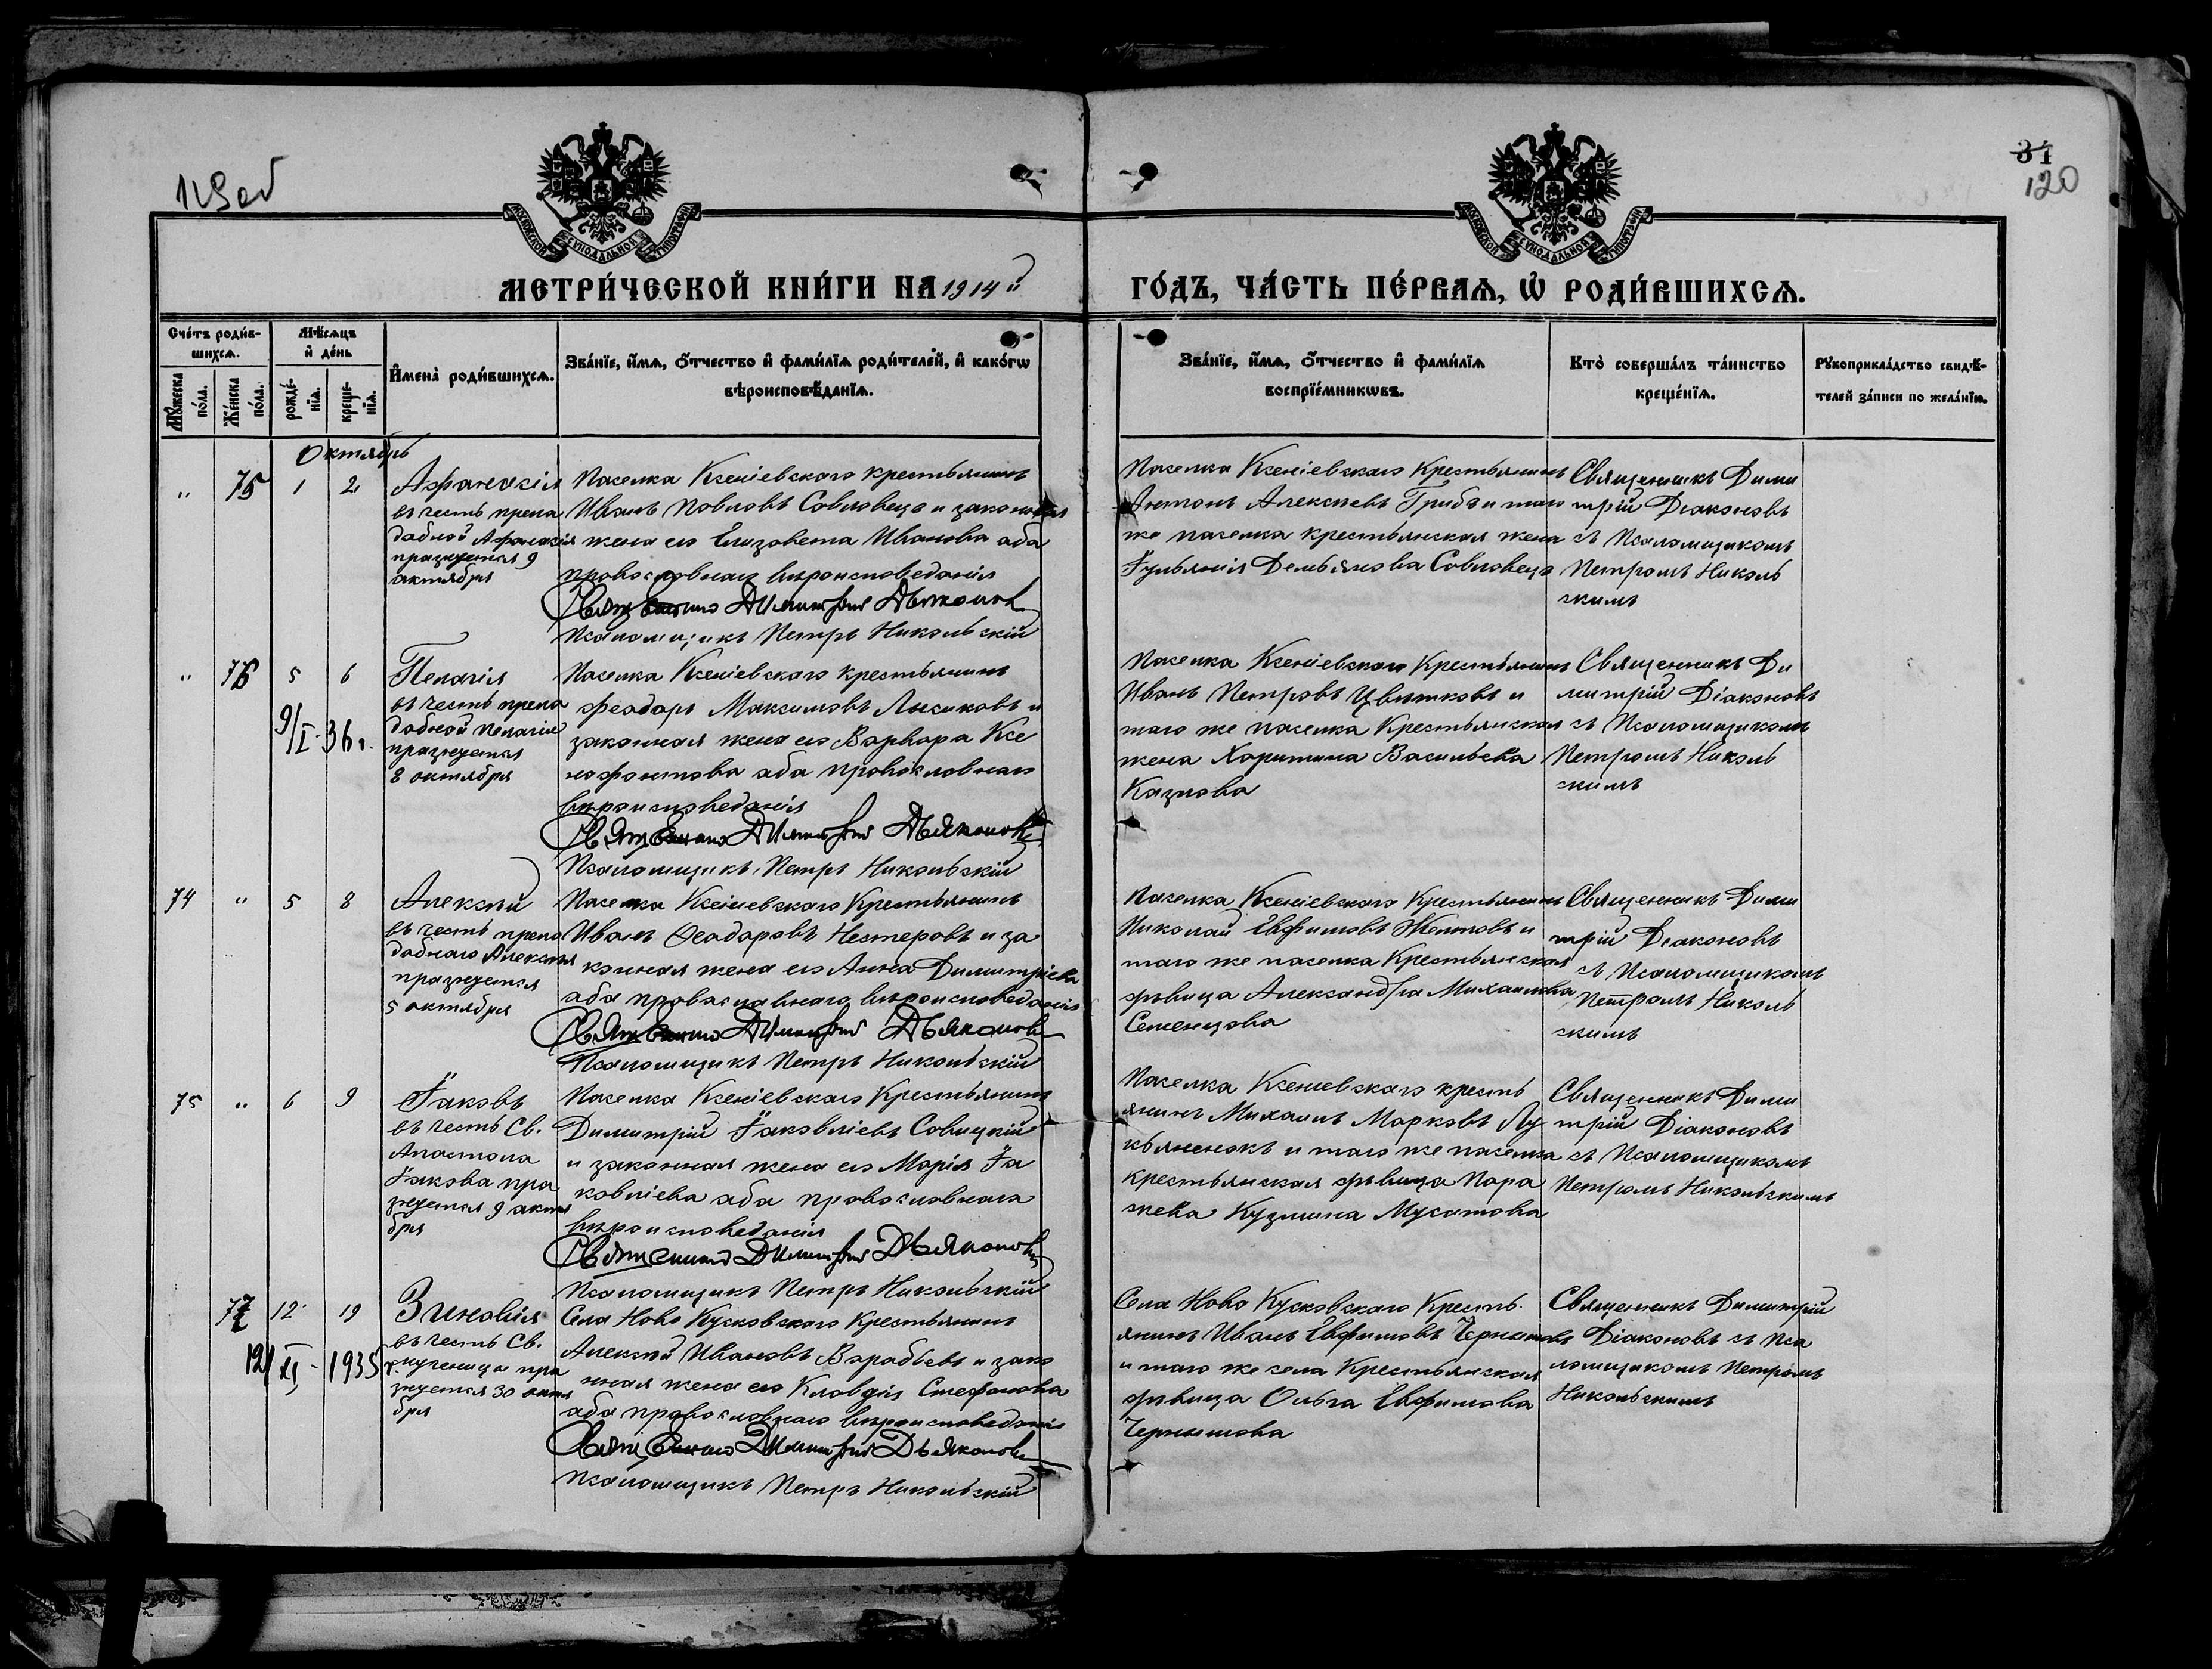 119 об
31
120
МОСКОВСКОЙ СУНОДАЛЬНОЙ ТИПОГРАФІИ
МОСКОВСКОЙ СУНОДАЛЬНОЙ ТИПОГРАФІИ
МЕТРИ́ЧЕСКОЙ КНИ́ГИ НА 1914 й
ГО́ДЪ, ЧА́СТЬ ПЕ́РВАѦ, Ѡ҆ РОДИ́ВШИХСѦ.
Сче́тъ роди́в-
шихсѧ.
Мꙋ́жеска
по́ла.
Же́нска
по́ла.
Мѣ́сѧцъ
и҆ де́нь
рожде́-
нїѧ.
креще-
нїѧ.
И҆мена̀ роди́вшихсѧ.
Зва́нїе, и҆́мѧ, ѻ҆́тчество и҆ фами́лїѧ роди́телей, и҆ како́гѡ
вѣроисповѣ́данїѧ.
Зва́нїе, и҆́мѧ, ѻ҆́тчество и҆ фами́лїѧ
воспрїе́мникѡвъ.
Кто̀ соверша́лъ та́инство
креще́нїѧ.
Рꙋкоприкла́дство свидѣ́-
телей за́писи по жела́нїю.
Октябрь
" 75 1 2
Афанасія
въ честь препо
добной Афанасія
празнуется 9
октября
Поселка Ксеніевскаго крестьянинъ
Иванъ Повловъ Совловецъ и законная
жена его Елизовета Иванова оба
провословнаго вѣроисповеданія
Священникъ Димитрій Дьяконов
Псаломщикъ Петръ Никольскій
Поселка Ксеніевскаго Крестьянинъ
Антонъ Алексѣевъ Грибъ и того
же поселка крестьянская жена
Іульянія Демьянова Совловецъ
Священникъ Дими
трій Діаконовъ
съ Псаломщикомъ
Петромъ Николь
скимъ
" 76 5 6
9/I-36 г.
Пелагія
въ честь препо
добной Пелагіи
празнуется
8 октября
Поселка Ксеніевскаго крестьянинъ
Феодоръ Максимовъ Лысиковъ и
законная жена его Варвора Ксе
нофонтова оба провословнаго
вѣроисповеданія
Священникъ Димитрій Дьяконовъ
Псаломщикъ Петръ Никольскій
Поселка Ксеніевскаго Крестьянинъ
Иванъ Петровъ Цвѣтковъ и
того же поселка Крестьянская
жена Харитина Васильева
Казнова
Священникъ Ди
митрій Діаконовъ
съ Псаломщикомъ
Петромъ Николь
скимъ
74 " 5 8
Алексѣй
въ честь препо
добнаго Алексѣя
празнуется
5 октября
Поселка Ксеніевскаго Крестьянинъ
Иванъ Ѳеодоровъ Нестеровъ и за
конная жена его Анна Димитріева
оба провославнаго вѣроисповеданія
Священникъ Димитрій Дьяконовъ
Псаломщикъ Петръ Никольскій
Поселка Ксеніевскаго Крестьянинъ
Николай Евфимовъ Желтовъ и
того же поселка Крестьянская
дѣвица Александра Михаилова
Семенцова
Священникъ Дими
трій Діаконовъ
съ Псаломщикомъ
Петромъ Николь
скимъ
75 " 6 9
Іаковъ
въ честь Св.
Апостола
Іакова пра
знуется 9 октя
бря
Поселка Ксеніевскаго Крестьянинъ
Димитрій Іаковлевъ Совицкій
и законная жена его Марія Іа
ковлева оба провословнаго
вѣроисповеданія
Священникъ Димитрій Дьяконовъ
Псаломщикъ Петръ Никольскій
Поселка Ксеніевскаго кресть
янинъ Михаилъ Марковъ Лу
кьяненокъ и того же поселка
крестьянская дѣвица Пара
скева Кузмина Мусатова
Священникъ Дими
трій Діаконовъ
съ Псаломщикомъ
Петромъ Никольскимъ
77 12 19
12/XI-1935 г.
Зиновія
въ честь Св.
мученицы пра
знуется 30 октя
бря
Села Ново Кусковскаго Крестьянинъ
Алексѣй Ивановъ Варабьевъ и зако
нная жена его Клавдія Стефанова
оба провословнаго вѣроисповеданія
Священникъ Димитрій Дьяконовъ
Псаломщикъ Петръ Никольскій
Села Ново Кусковскаго Кресть
янинъ Иванъ Евфимовъ Чернышовъ
и того же села Крестьянская
дѣвица Ольга Евфимова
Чернышова
Священникъ Димитрій
Діаконовъ съ Пса
ломщикомъ Петромъ
Никольскимъ